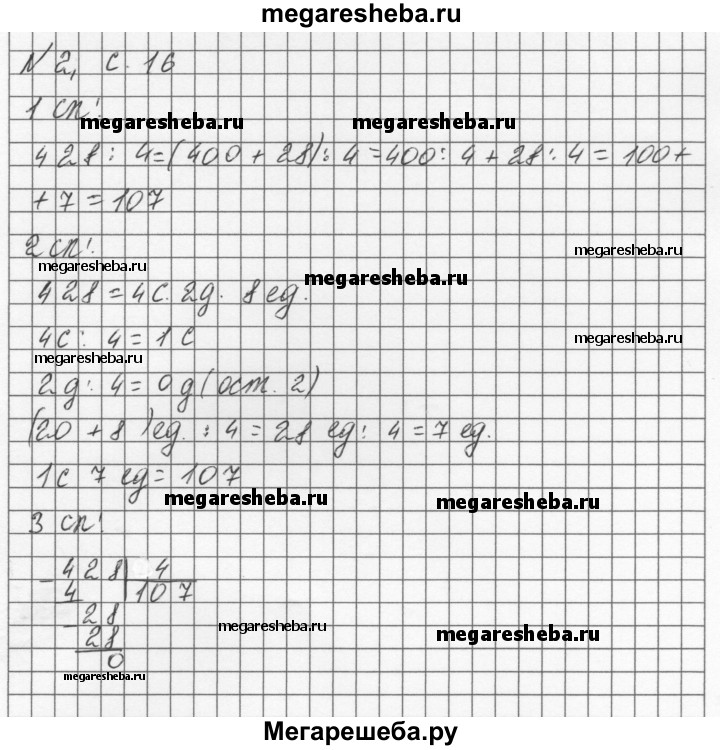 megaresheba.ru
№ 2, с. 16
1 сп:
megaresheba.ru megaresheba.ru
428 : 4 = (400 + 28) : 4 = 400 : 4 + 28 : 4 = 100 +
+ 7 = 107
2 сп:
megaresheba.ru megaresheba.ru
megaresheba.ru
428 = 4с. 2д. 8 ед.
4с : 4 = 1 с
megaresheba.ru megaresheba.ru
2д : 4 = 0д (ост. 2)
(20 + 8) ед. : 4 = 28 ед : 4 = 7 ед.
1с 7 ед = 107
megaresheba.ru megaresheba.ru
3 сп:
- 428 | 4
4 107
- 28
28
megaresheba.ru megaresheba.ru
0
megaresheba.ru
Мегарешеба.ру